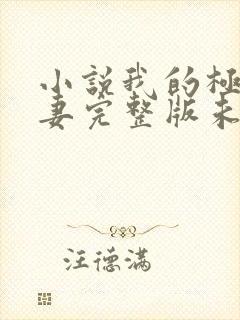 小説我的極
妻完整版未
汪德滿